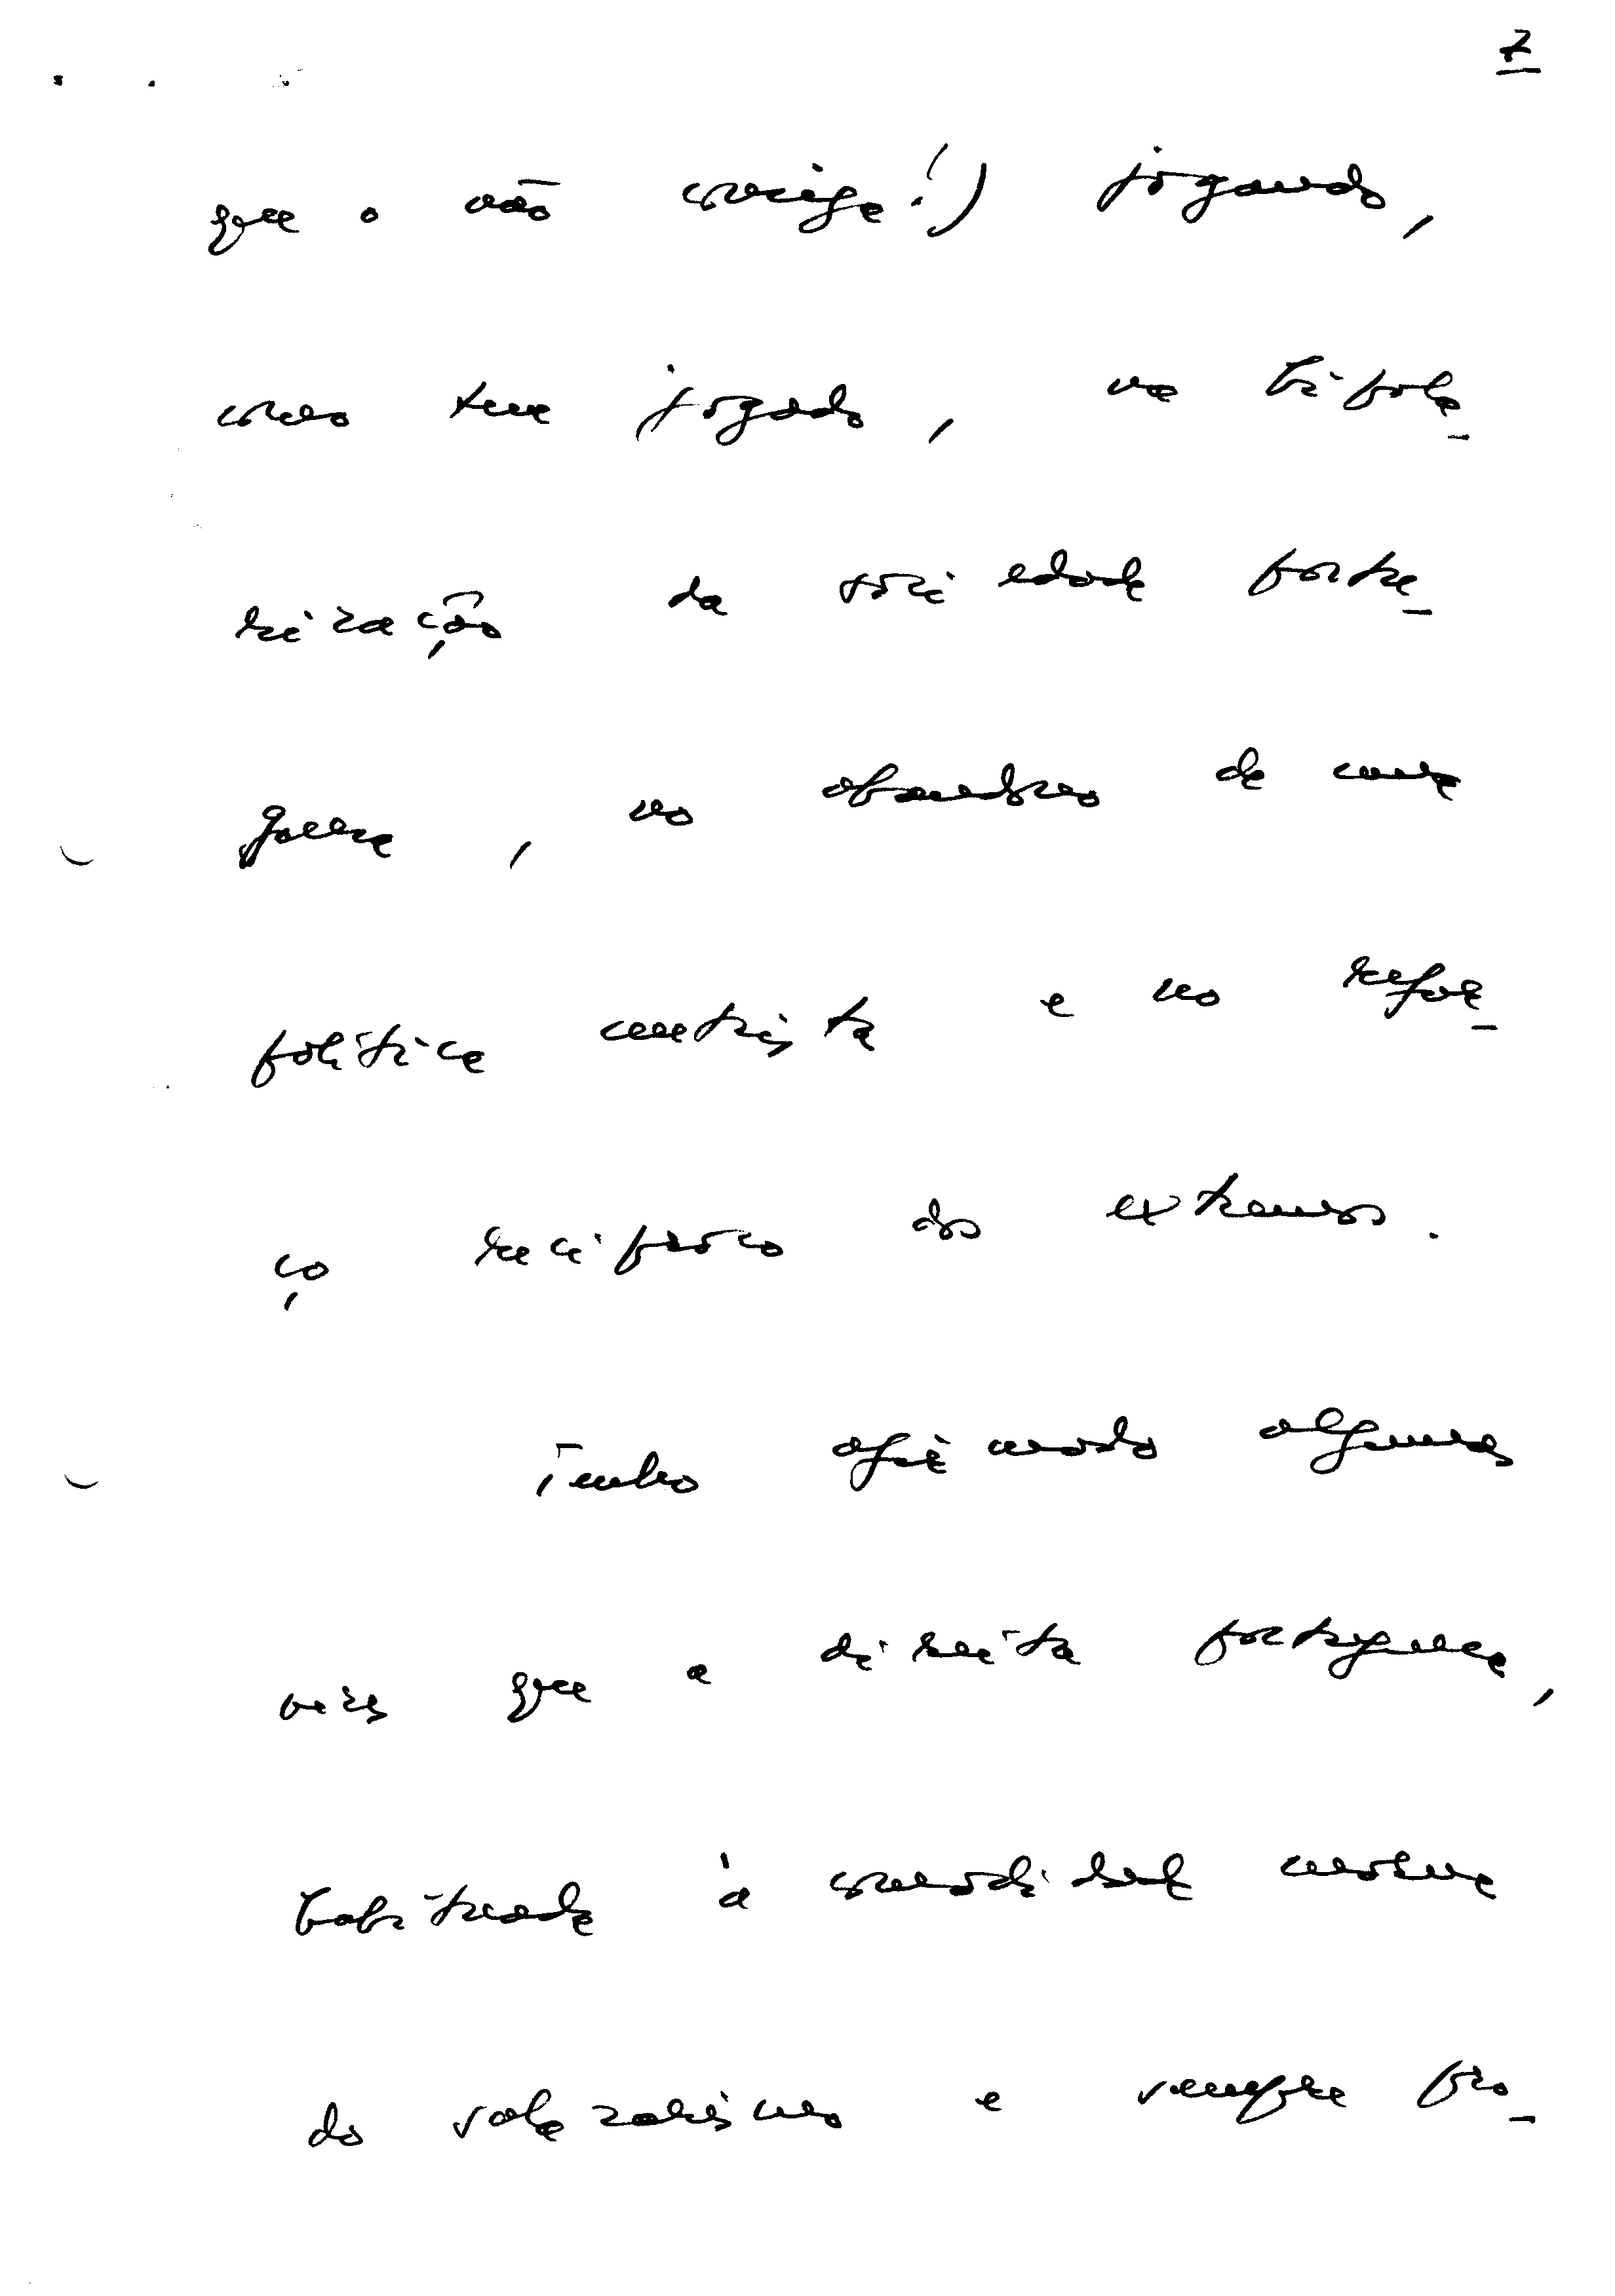 7
que o não corrige!) jogando,
como tem jogado, na bipola-
rização da sociedade portu-
guesa, no abandono de uma
política centrista e no refor-
ço recíproco dos extremos.
Tenho afirmado algumas
vezes que a direita portuguesa,
habituada à comodidade morna
do salazarismo e sempre pro-